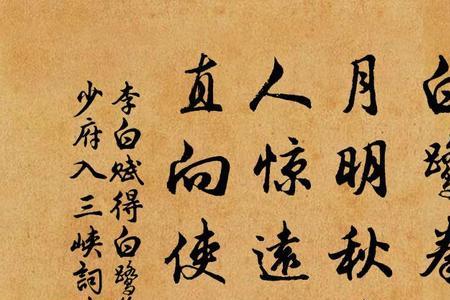 白鹭拳
月明秋
人惊远
直向使
李白赋得白鹭
少府入三峡詞